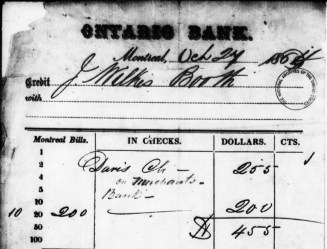 ONTARIO BANK.
Montreal, Oct 27 1864
Credit J. Wilkes Booth
with
Montreal Bills. IN CHECKS. DOLLARS. CTS.
1
2 Davis Ch - 255
4 on Merchants -
5 Bank -
10 200 10 200
20
50 $ 455
100